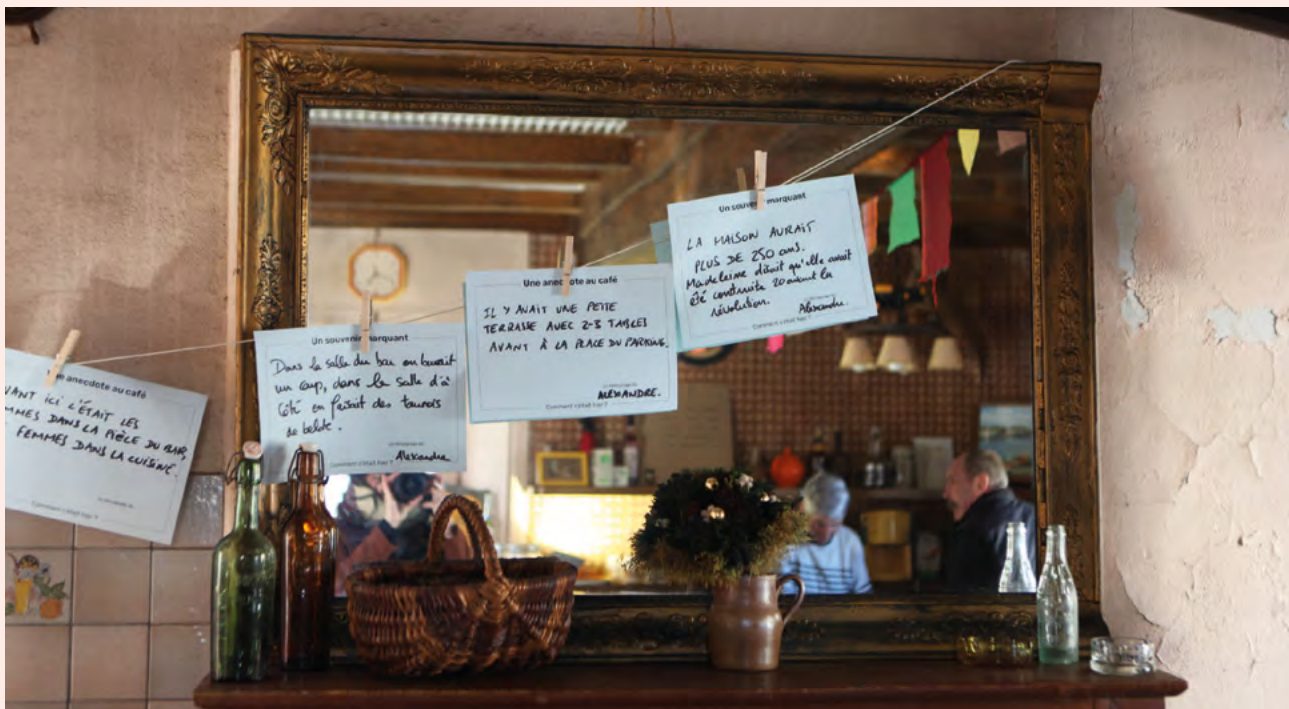 ne anecdote au café
VANT ICI C'ÉTAIT LES
MMES DANS LA PIÈCE DU BAR,
FEMMES DANS LA CUISINE.
Comment c'était hier ?
Un souvenir marquant
Dans la salle du bar on buvait
un coup, dans la salle d'à
côté on faisait des tournois
de belote.
Alexandre
Comment c'était hier ?
Une anecdote au café
IL Y AVAIT UNE PETITE
TERRASSE AVEC 2-3 TABLES
AVANT À LA PLACE DU PARKING.
ALEXANDRE.
Comment c'était hier ?
Un souvenir marquant
LA MAISON AURAIT
PLUS DE 250 ans.
Madeleine disait qu'elle avait
été construite 20 avant la
révolution.
Alexandre.
Comment c'était hier ?